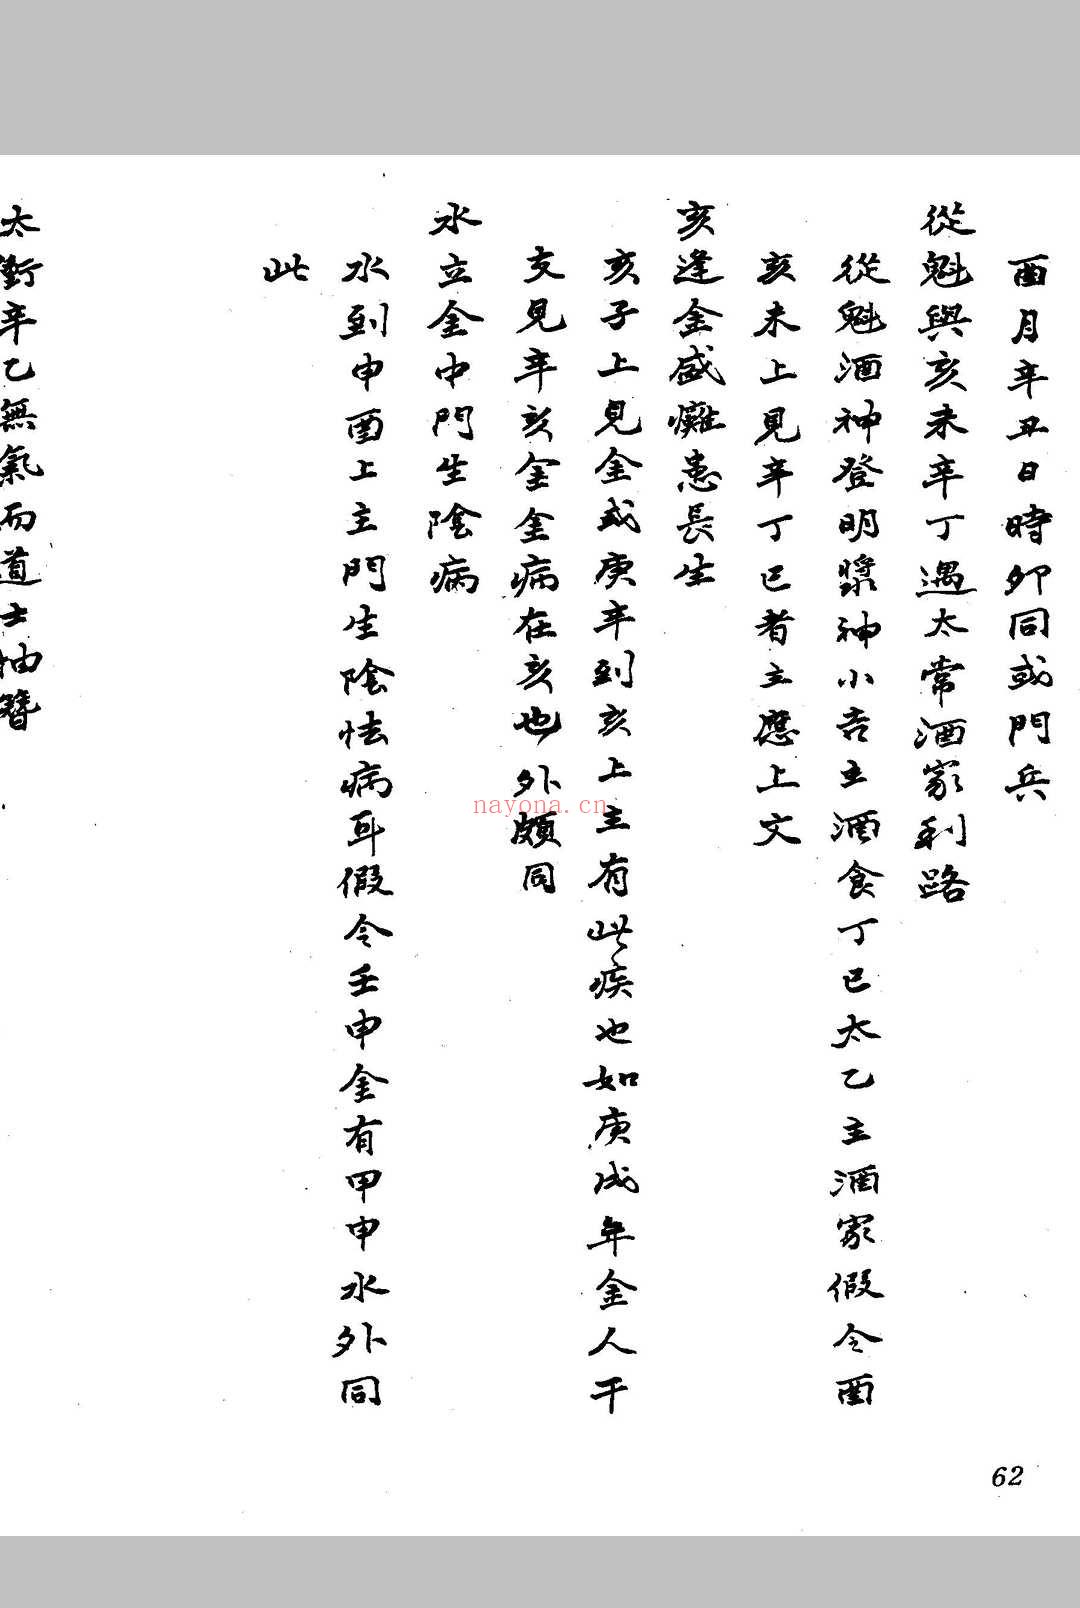 酉月辛丑日時卯同或門兵
從魁與亥未辛丁遇太常酒家利路
從魁酒神登明漿神小吉主酒食丁巳太乙主酒家假令酉
亥未上見辛丁巳者主應上文
亥逢金盛癱患長生
亥子上見金或庚辛到亥上主有此疾也如庚戌年金人干
支見辛亥金金病在亥也外類同
水立金中門生陰病
水到申酉上主門生陰怯病耳假令壬申金有甲申水外同
此
太衝辛乙無氣而道士抽簪
nayona.cn
62